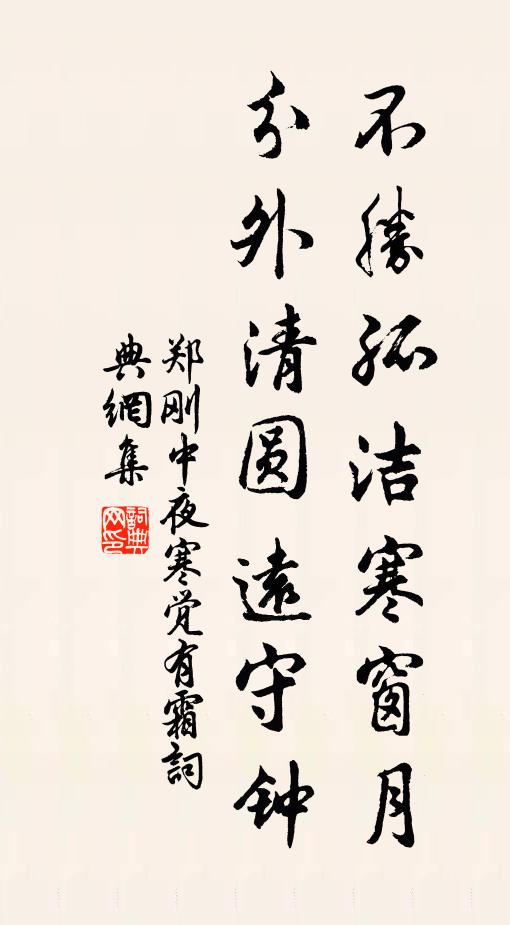 不勝孤洁寒窗月
分外清圆遠守钟
郑刚中夜寒觉有霜詞
典網集
詞典網印